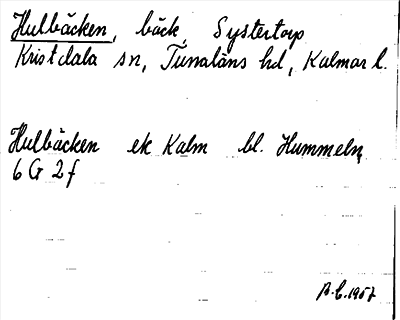 Hulbäcken, bäck, Systertorp
Kristdala sn, Tunaläns hd, Kalmar l.
Hulbäcken ek Kalm bl. Hummeln
6 G 2 f
B.C.1957